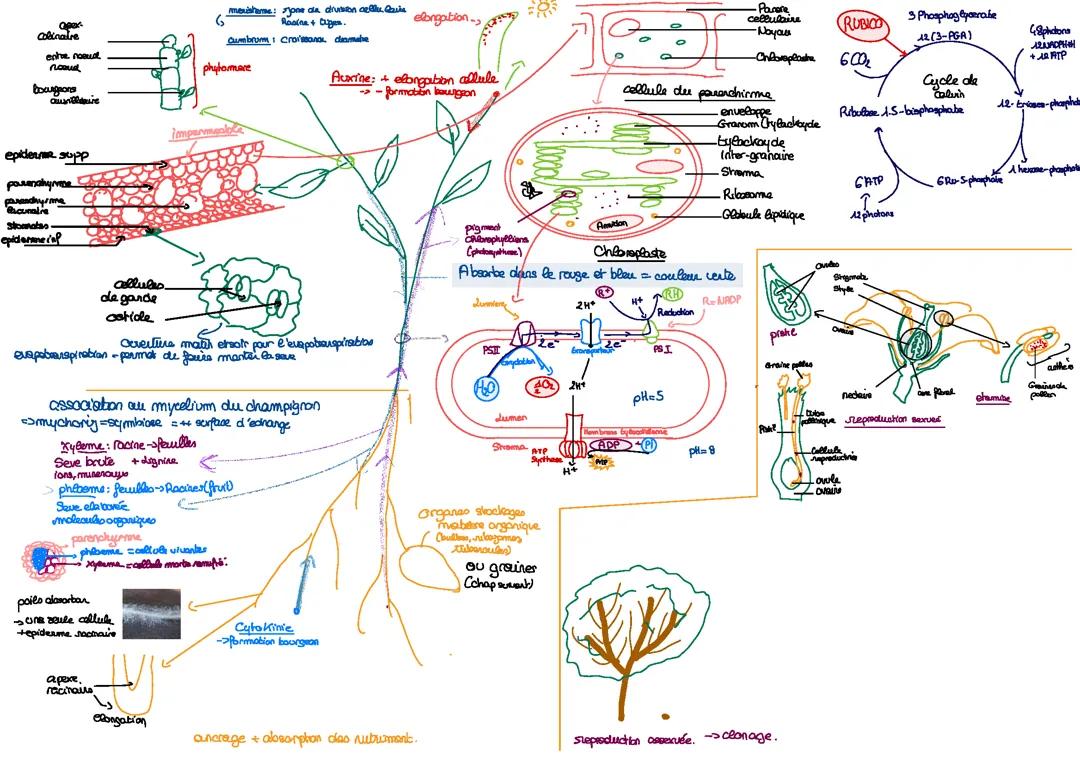 méristème: zone de division cellulaire
Racine + tiges.
cambium: croissance diamètre
apex
entre noeud
noeud
bourgeons
axillaire
phytomère
elongation
Auxine: + elongation cellule
-> - formation bourgeon
Parois
cellulaire
Noyau
Chloroplaste
cellule du parenchyme
enveloppe
Granum (tylakoyde
tylackoyde
inter-granaire
Stroma
Ribosome
Globule lipidique
Amidon
pigment
chlorophylliens
(photosynthèse)
Chloroplaste
RUBISCO
3 Phosphoglycerate
12 (3-PGA)
6CO₂
48 photons
12 NADPH+H
+ 12 ATP
Cycle de
calvin
Ribulose 1.5-bisphosphate
12-trioses-phosphate
1 hexose-phosphate
6 Ru-5-phosphate
6 ATP
12 photons
impermeable
epiderme supp
parenchyme
parenchyme
lacunaire
Stomates
epiderme inf
cellules
de garde
ostiole
Ouverture matin et soir pour l'evapotranspiration
evapotranspiration = permet de faire monter la seve
Absorbe dans le rouge et bleu = couleur verte
Lumière
2H⁺
R⁺
H⁺
RH
R=NADP
Reduction
PSII
2e⁻
transporteur
2e⁻
PS I
oxydation
H₂O
½O₂
2H⁺
pH=5
Lumen
Membrane tylacoïdienne
Stroma
ATP
Synthese
ADP
+ Pi
ATP
H⁺
pH=8
ovules
Stigmate
Style
ovaire
pistil
nectaire
axe floral
etamine
anthère
Grains de
pollen
reproduction sexuée
Graine pollen
Pistil
tube
pollinique
Cellule
reproductrice
ovule
ovaire
association au mycelium du champignon
=> mychorize = symbiose = ++ surface d'echange
Xyleme: racine -> feuilles
Seve brute + lignine
ions, mineraux
phloeme: feuilles -> Racines (fruit)
Seve elaborée
molecules organiques
parenchyme
phloeme = cellule vivantes
xyleme = cellule morte
poils absorban
-> une seule cellule
+ epiderme racinaire
apex
racinaire
elongation
Cytokinie
-> formation bourgeon
organes stockages
matière organique
(bulbes, rhizomes
tubercules)
ou graines
(chap suivant)
ancrage + absorption des nutriment.
reproduction asexuée. -> clonage.